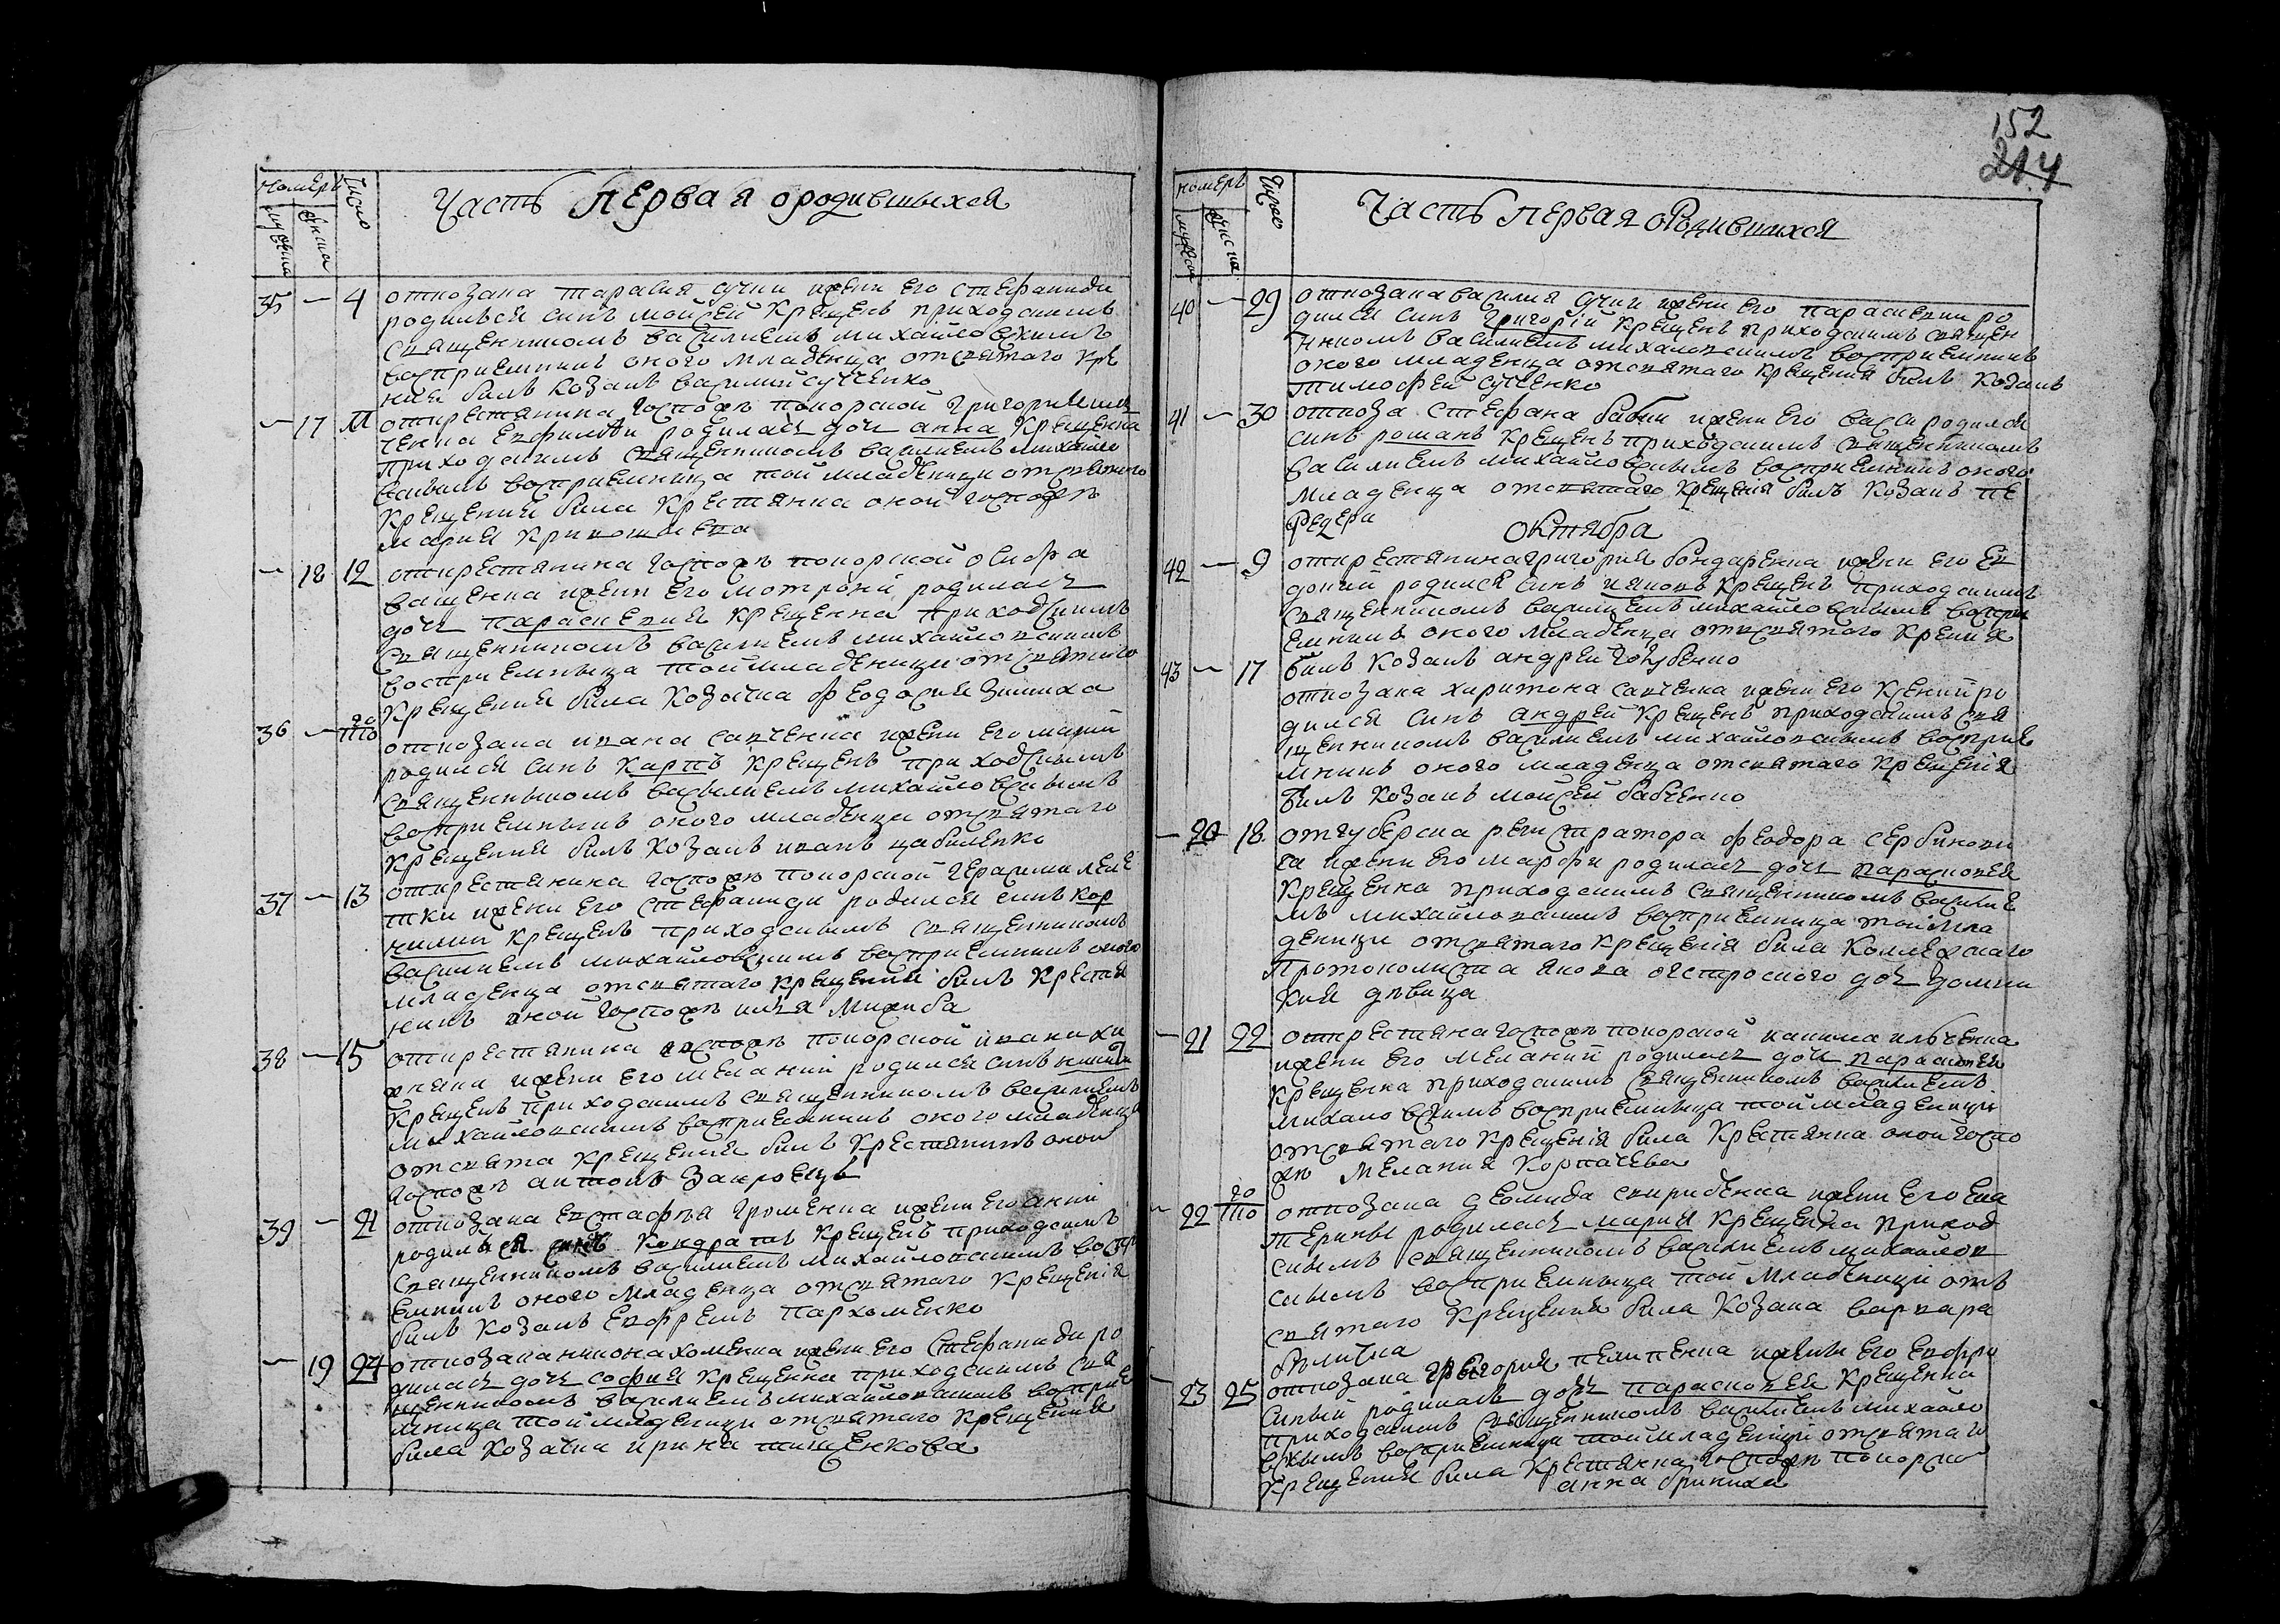 номеръ
мужеска
женска
Число
Часть первая о родившыхся
35 — 4 от козака тарасия сучки жени его стефаниди
родилъся синъ мойсей крещенъ приходскимъ
священникомъ василиемъ михайловскимъ
восприемникъ оного младенца от святаго кре
ния билъ козакъ василий сученко
— 17 11 от крестянина госпожѣ покорской григория
ченка евфимѣи родилась дочь анна крещенна
приходскимъ священникомъ василиемъ михайло
вскимъ восприемница той младеници от святого
крещения била крестянка оной госпожѣ
мария
— 18 12 от крестянина госпожѣ покорской осифа
ващенка жени его мотроній родилась
дочь параскевия крещенна приходскимъ
священникомъ василиемъ михайловскимъ
восприемныца той младеници от святого
крещения била козачка феодория зимиха
36 — того от козака ивана савченка жени его марий
родился синъ карпъ крещенъ приходскымъ
священныкомъ василиемъ михайловскымъ
восприемныкъ оного младенца от святаго
крещения билъ козакъ иванъ цабиленко
37 — 13 от крестянина госпожѣ покорской герасима леле
тки жени его стефаниди родился синъ кор
нилий крещенъ приходскымъ священникомъ
василиемъ михайловскимъ восприемникъ оного
младенца от святаго крещений билъ крестя
нинъ оной госпожѣ илья
38 — 15 от крестянина госпожѣ покорской ивана
жени его меланій родился синъ
крещенъ приходскимъ священникомъ василиемъ
михайловскимъ восприемникъ оного младенца
от свята крещения билъ крестянинъ оной
госпожѣ антонъ закроецъ
39 — 21 от козака евстафѣя громенка жени его анни
родился синъ кондратъ крещенъ приходскимъ
священникомъ василиемъ михайловскимъ воспри
емникъ оного младенца от святаго крещенія
билъ козакъ евфремъ пархоменко
— 19 24 от козака никона хоменка жени его стефаниди ро
дилась дочь софия крещенна приходскимъ свя
щенникомъ василиемъ михайловскимъ восприе
мница той младеници от святаго крещения
била козачка ирина тищенкова
152
214
номеръ
мужеска
женска
Число
Часть первая о Родившихся
40 — 29 от козака василия сучки жени его параскевии ро
дился синъ григорій крещенъ приходскимъ священ
никомъ василиемъ михаловскимъ восприемникъ
оного младенца от святаго крещения билъ козакъ
тимофей сученко
41 — 30 от коза стефана бабки жени его васси родился
синъ романъ крещенъ приходскимъ священникомъ
василиемъ михайловскымъ восприемникъ оного
младенца от святаго крещенія билъ козакъ пе

Октября
42 — 9 от крестянина григория бондаренка жени его ев
докий родился синъ ияковъ крещенъ приходскимъ
священникомъ василиемъ михайловскымъ воспри
емникъ оного младенца от святаго крения
билъ козакъ андрей голубенко
43 — 17 от козака харитона савченка жени его ксений ро
дился синъ андрей крещенъ приходскимъ свя
щенникомъ василиемъ михайловскымъ восприе
мникъ оного младенца от святаго крещенія
билъ козакъ мойсей бабченко
— 20 18 от губерска регистратора феодора сербинови
ча жени его марфи родилась дочь парасковея
крещенна приходскимъ священникомъ василие
мъ михайловскимъ восприемница той мла
деници от святаго крещенія била коллежскаго
Протоколиста якова острого дочь домни
кия дѣвица
— 21 22 от крестяна госпожѣ покорской какима ильченка
жени его меланий родилась дочь парасковея
крещенна приходскимъ священникомъ василиемъ
михаловскимъ восприемныца той младеници
от святаго крещенія била крестянка оной госпо
жѣ Мелания корпачева
— 22 того от козака деомида свириденка жени его ека
терины родилась мария крещенна приход
скымъ священникомъ василиемъ михайлов
скымъ восприемныца той младеници отъ
святаго крещения била козака варвара
билична
— 23 25 от козака григория пелипенка жены его евфро
синый родилась дочь парасковея крещенна
приходскимъ священникомъ василиемъ михайло
вскымъ восприемница той младеници от святаго
крещения била крестянка госпожѣ покорско
анна бриниха